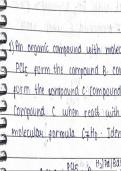 1) An organic compound with molec
PCl5 form the compound B. Com
form the compound C. Compound
Compound C when react with
molecular formula C7H8. Iden
PCl5 B H2/Pd/Bd